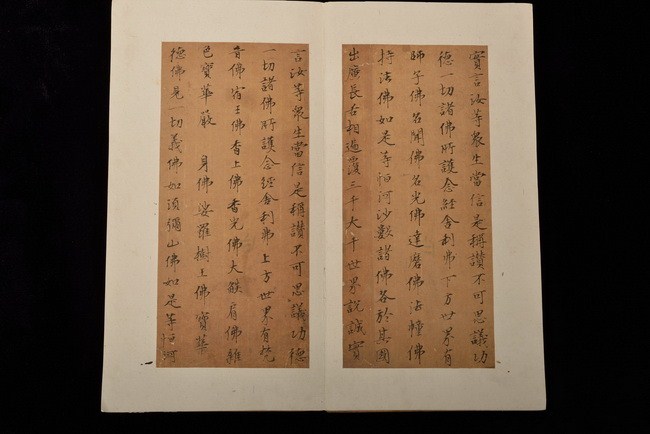 實言汝等衆生當信是稱讚不可思議功
德一切諸佛所護念經舍利弗下方世界有
師子佛名聞佛名光佛達磨佛法幢佛
持法佛如是等恒河沙數諸佛各於其國
出廣長舌相遍覆三千大千世界說誠實
言汝等衆生當信是稱讚不可思議功德
一切諸佛所護念經舍利弗上方世界有梵
音佛宿王佛香上佛香光佛大燄肩佛雜
色寶華嚴身佛娑羅樹王佛寶華
德佛見一切義佛如須彌山佛如是等恒河